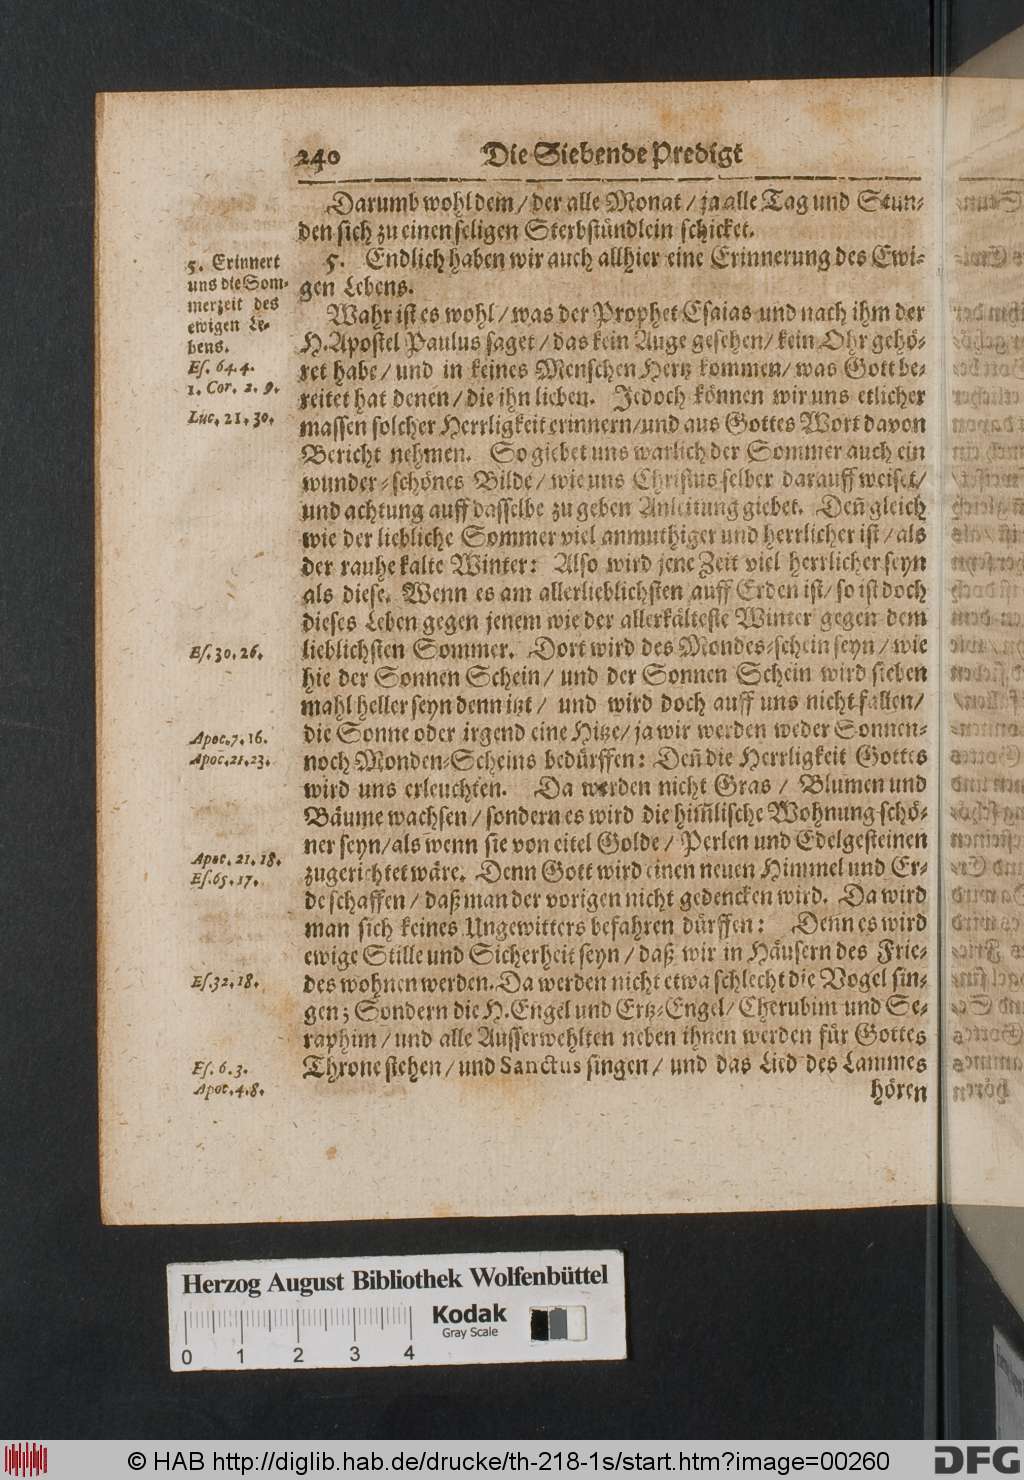 240 Die Siebende Predigt
Darumb wohl dem / der alle Monat / ja alle Tag und Stun-
den sich zu einen seligen Sterbstündlein schicket.
5. Endlich haben wir auch allhier eine Erinnerung des Ewi-
gen Lebens.
Wahr ist es wohl / was der Prophet Esaias und nach ihm der
H. Apostel Paulus saget / das kein Auge gesehen / kein Ohr gehö-
ret habe / und in keines Menschen Hertz kommen / was Gott be-
reitet hat denen / die ihn lieben. Jedoch können wir uns etlicher
massen solcher Herrligkeit erinnern / und aus Gottes Wort davon
Bericht nehmen. So giebet uns warlich der Sommer auch ein
wunder-schönes Bilde / wie uns Christus selber darauff weiset /
und achtung auff dasselbe zu geben Anleitung giebet. Deñ gleich
wie der liebliche Sommer viel anmuthiger und herrlicher ist / als
der rauhe kalte Winter: Also wird jene Zeit viel herrlicher seyn
als diese. Wenn es am allerlieblichsten auff Erden ist / so ist doch
dieses Leben gegen jenem wie der allerkälteste Winter gegen dem
lieblichsten Sommer. Dort wird des Mondes-schein seyn / wie
hie der Sonnen Schein / und der Sonnen Schein wird sieben
mahl heller seyn denn itzt / und wird doch auff uns nicht fallen /
die Sonne oder irgend eine Hitze / ja wir werden weder Sonnen-
noch Monden-Scheins bedürffen: Deñ die Herrligkeit Gottes
wird uns erleuchten. Da werden nicht Gras / Blumen und
Bäume wachsen / sondern es wird die him̃lische Wohnung schö-
ner seyn / als wenn sie von eitel Golde / Perlen und Edelgesteinen
zugerichtet wäre. Denn Gott wird einen neuen Himmel und Er-
de schaffen / daß man der vorigen nicht gedencken wird. Da wird
man sich keines Ungewitters befahren dürffen: Denn es wird
ewige Stille und Sicherheit seyn / daß wir in Häusern des Frie-
des wohnen werden. Da werden nicht etwa schlecht die Vogel sin-
gen; Sondern die H. Engel und Ertz-Engel / Cherubim und Se-
raphim / und alle Ausserwehlten neben ihnen werden für Gottes
Throne stehen / und Sanctus singen / und das Lied des Lammes
hören
5. Erinnert
uns die Som-
merzeit des
ewigen Le-
bens.
Es. 64. 4.
1. Cor. 2. 9.
Luc. 21. 30.
Es. 30. 26.
Apoc. 7. 16.
Apoc. 21. 23.
Apoc. 21. 18.
Es. 65. 17.
Es. 32. 18.
Es. 6. 3.
Apoc. 4. 8.
Herzog August Bibliothek Wolfenbüttel
Kodak
Gray Scale
0 1 2 3 4
© HAB http://diglib.hab.de/drucke/th-218-1s/start.htm?image=00260
DFG